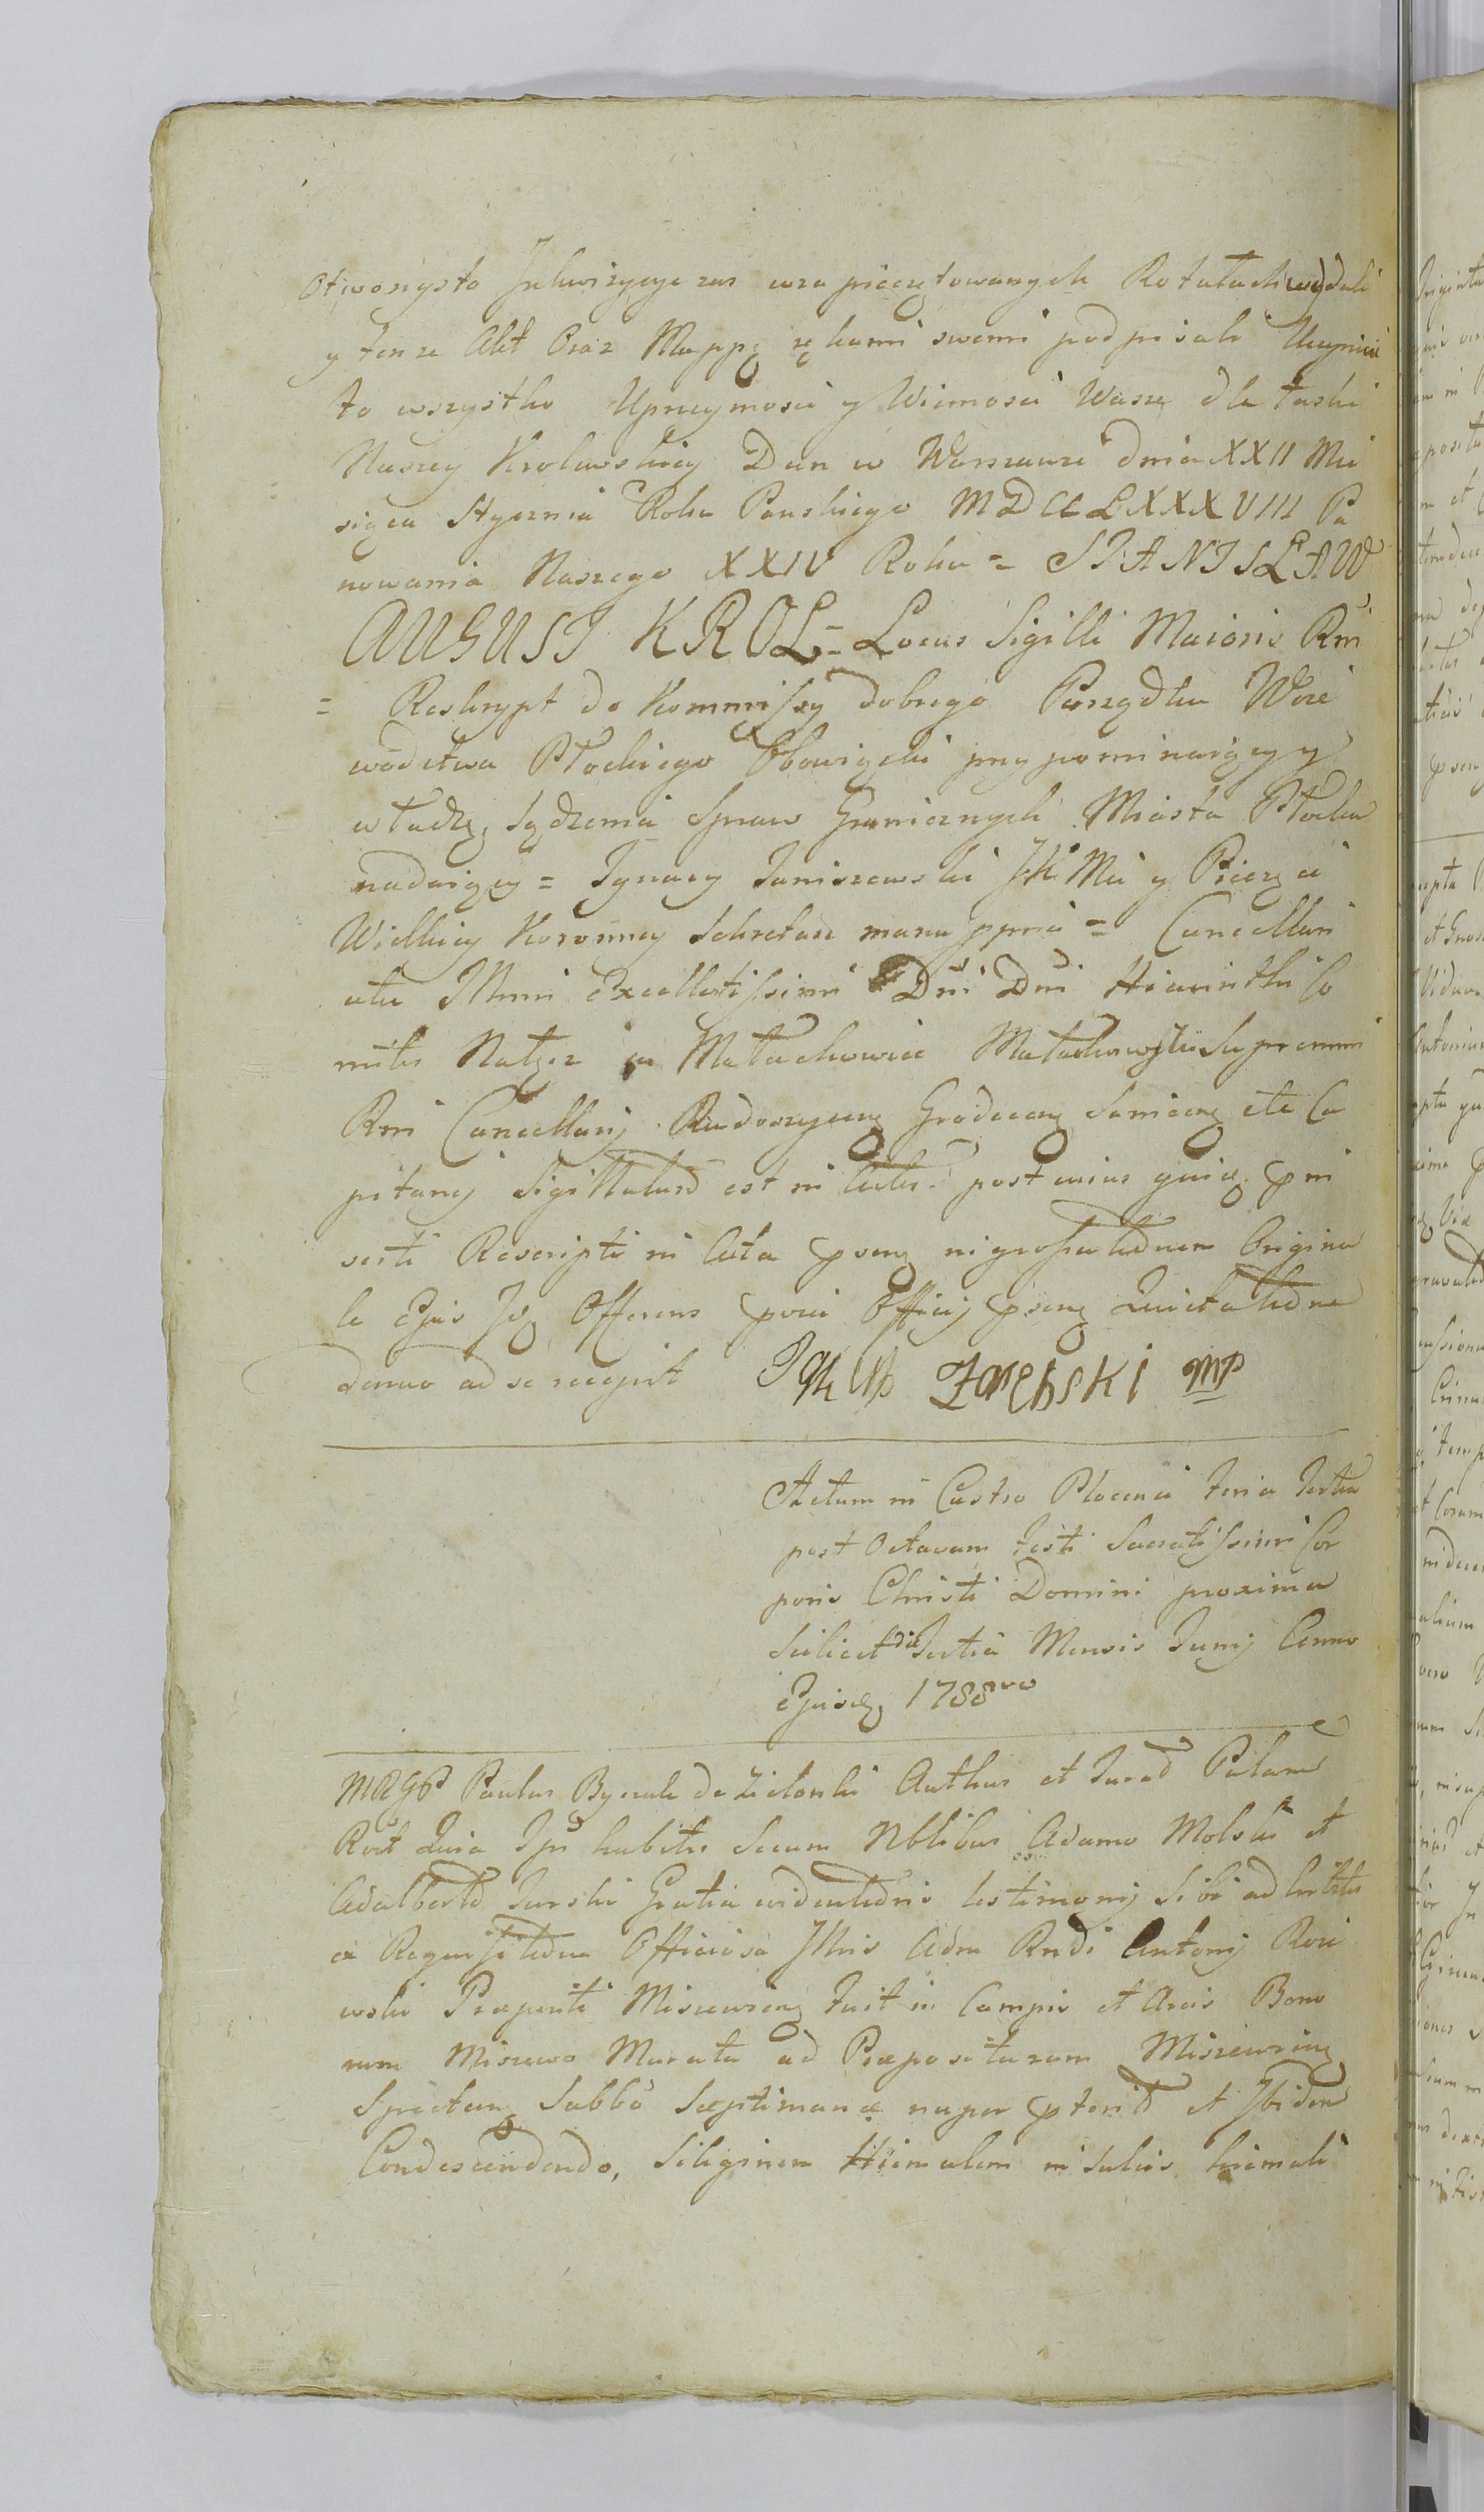 otworzysto Inkwizycye zas w zapieczętowanych Rotułach wydali
y tenze Akt Oraz Mappę rękami swemi podpisali Uczynicie
to wszystko Uprzeymosci y Wiernosci Wasze dla łaski
Naszey Krolewskiey Dan w Warszawie dnia XXII Mie
siąca Stycznia Roku Panskiego MDCCLXXXVIII Pa
nowania Naszego XXIV Roku = STANISŁAW
AUGUST KROL = Locus Sigilli Maioris Rni
= Reskrypt do Kommissyi dobrego Porządku Woie
wodztwa Płockiego Obowiązki przypominaiący y
władzę Sądzenia Spraw Granicznych Miasta Płocka
nadaiący = Ignacy Janiszewski JKMci y Pieczęci
Wielkiey Koronney Sekretarz manu ppria = Cancellari
atu Illmi Excellentissimi Dni Dni Hiacinthi Co
mitis Nałęcz in Małachowice Małachowski Supremi
Rni Cancellarij Radoszycen Grodecen Sanicen etc Ca
pitanei Sigillatum est in Actis post cuius quid pn
serti Rescripti in Acta psen ingrossationem Origina
le Ejus Idq Offerens psei Officij psen Quietatione
denuo ad se recepit Jakub Zarębski mp
Actum in Castro Plocensi Feria Tertia
post Octavam Festi Sacratissimi Cor
poris Christi Domini proxima
Scilicet die Tertia Mensis Junij Anno
Ejusdq 1788vo
Paulus Bycek de Zielonki Authus et Jurad Palam
Rcvt Quia Ips habitis Secum Nblibus Adamo Molski et
Adalberto Jurski Gratia evidentioris testimonij Sibi adhibitis
ex Requisitione Officiosa Illris Adm Rndi Antonij Rosi
ewski Præpositi Miszewien Fuit in Campis et Areis Bono
rum Miszewo Murata ad Præposituram Miszewien
Spectan Sabbo Septimanæ nuper pterid et Ibidem
Condescendendo, Siliginem Hiemalem in Sulcis hiemali